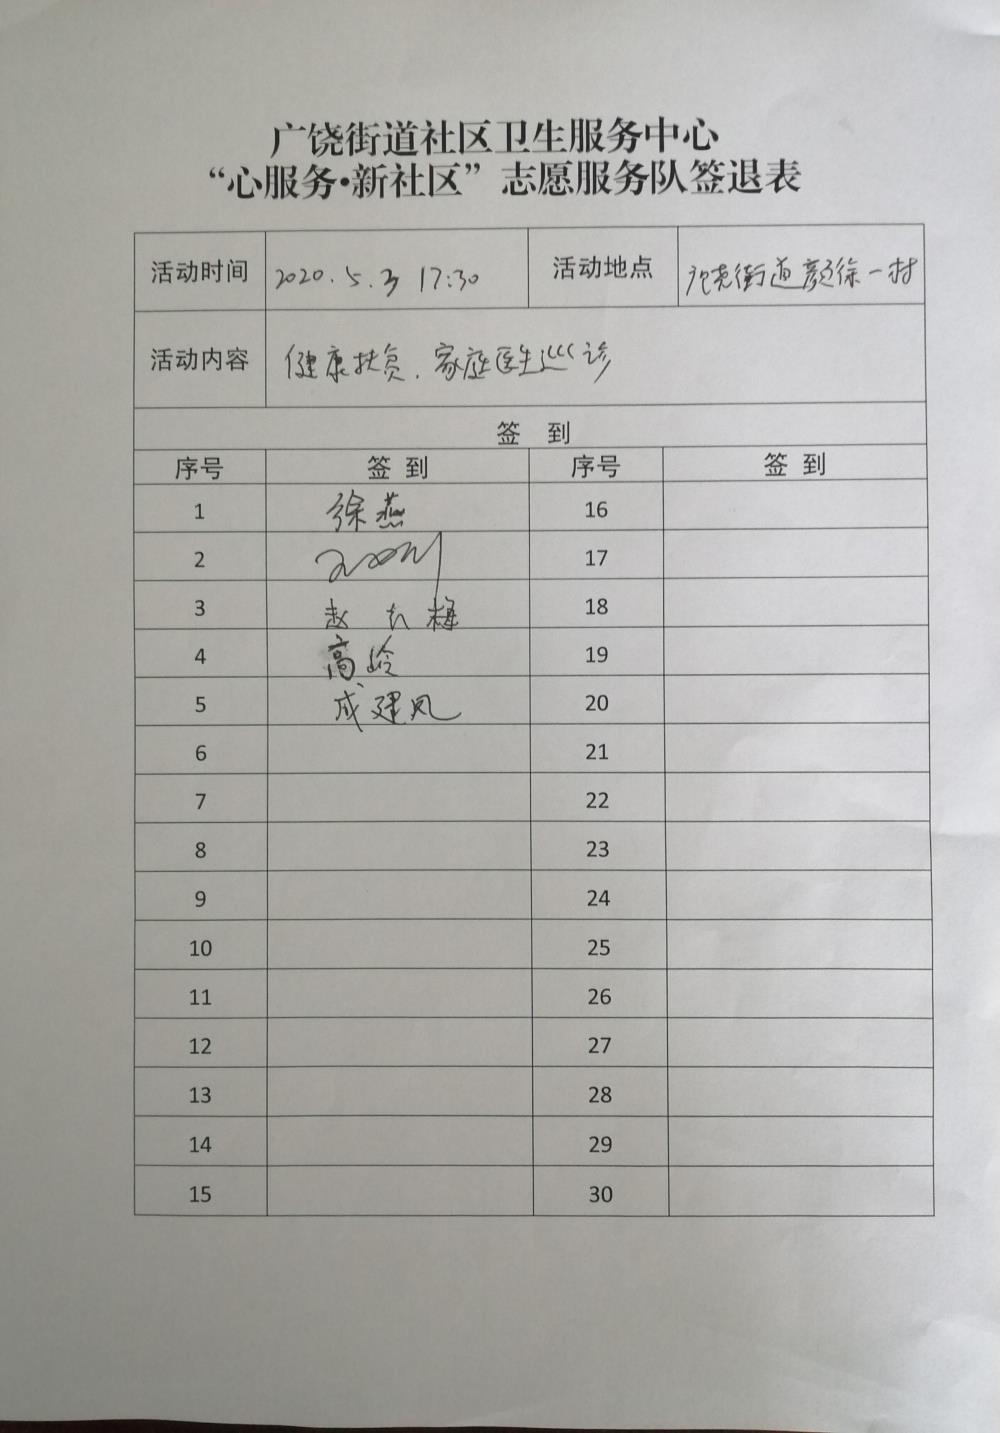 广饶街道社区卫生服务中心
“心服务·新社区”志愿服务队签退表
活动时间 2020.5.3 17:30 活动地点 广饶街道颜徐一村
活动内容 健康扶贫、家庭医生巡诊
签 到
序号 签 到 序号 签 到
1 徐燕 16
2 17
3 赵 梅 18
4 高岭 19
5 成建凤 20
6 21
7 22
8 23
9 24
10 25
11 26
12 27
13 28
14 29
15 30